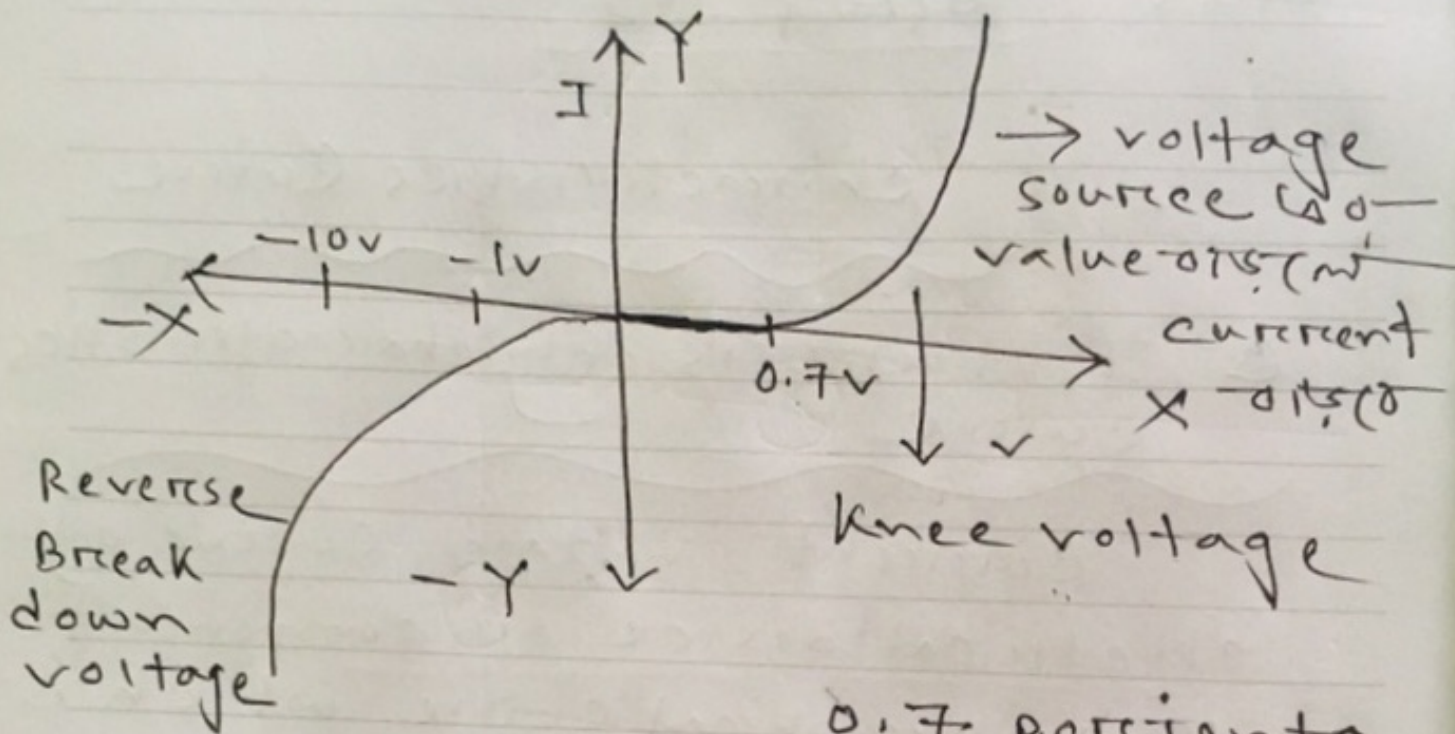 Y
I
→ voltage
source
value
current
X
-10v
-1v
-X
0.7v
v
Knee voltage
Reverse
Break
down
voltage
-Y
0.7